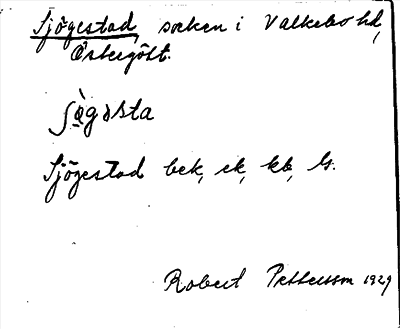 Sjögestad, socken i Valkebo hd,
Östergötl.
Sjögestad bek, ek, kb, ls.
Robert Pettersson 1929